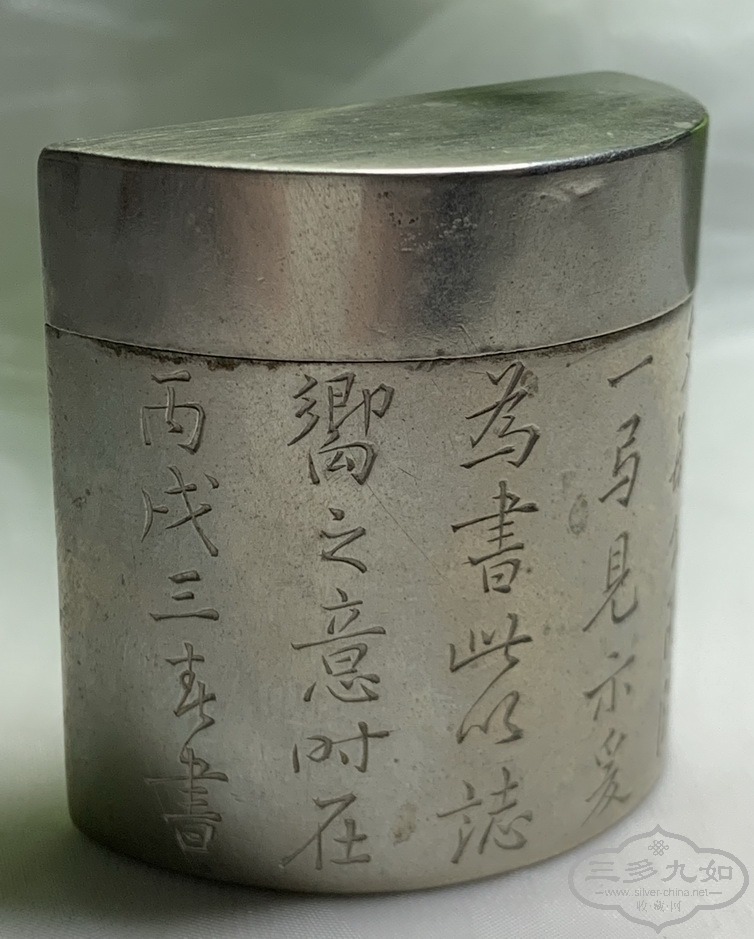 一見示爰
為書此以誌
嚮之意时在
丙戌三春書
三多九如
www.silver-china.net
收·藏·网